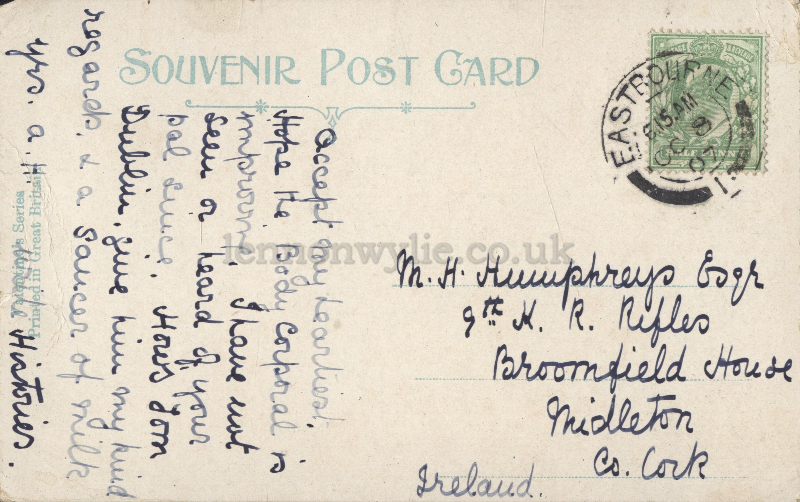 SOUVENIR POST CARD
EASTBOURNE
8.15 AM
OC 8
07
HALF PENNY
Accept my heartiest.
Hope the Body Corporal is
improving. I have not
seen or heard of your
pal since. How's Tom
Dublin, give him my kind
regards. & a Saucer of milk
Yrs. a. H.
Histories.
M. H. Humphreys Esqr
9th K. R. Rifles
Broomfield House
Midleton
Co. Cork
Ireland.
Series
Printed in Great Britain
lennonwylie.co.uk